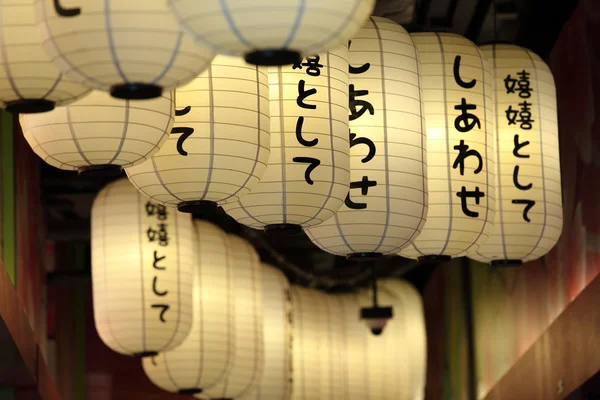 し
て
嬉として
しあわさ
しあわせ
嬉嬉として
嬉嬉として